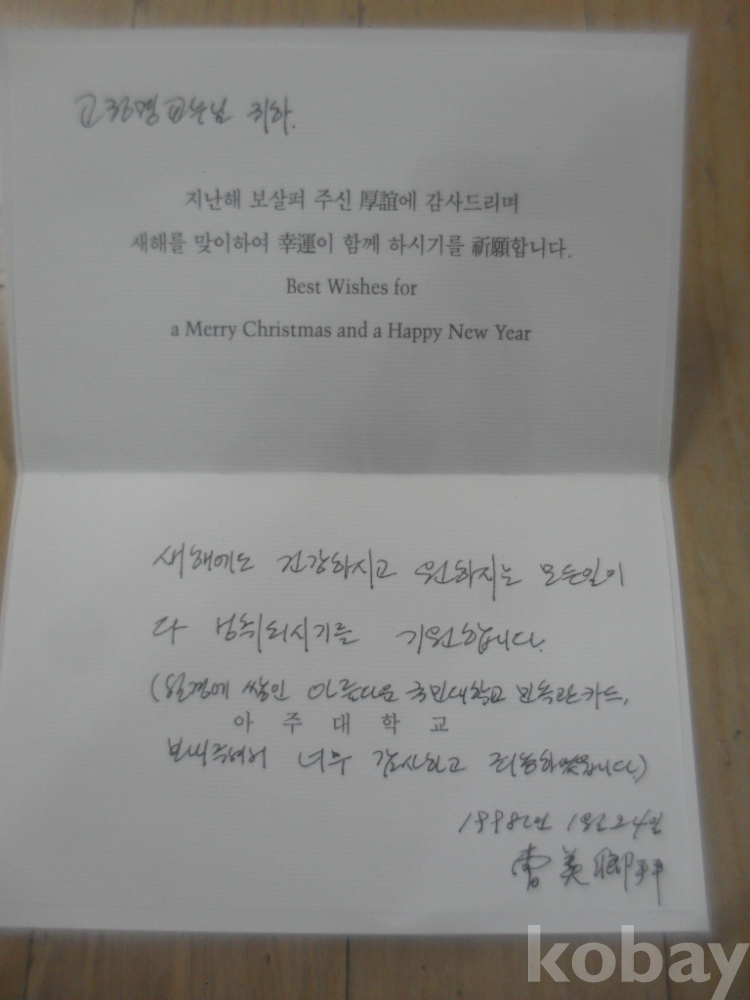 교수님 귀하.
지난해 보살펴 주신 厚誼에 감사드리며
새해를 맞이하여 幸運이 함께 하시기를 祈願합니다.
Best Wishes for
a Merry Christmas and a Happy New Year
새해에도 건강하시고 원하시는 모든일이
다 성취되시기를 기원합니다.
(설경에 쌓인 아름다운 국민대학교 민속관카드,
아주대학교
보내주셔서 너무 감사하고 죄송하였읍니다)
1998년 1월 24일
曺美卿拜
kobay